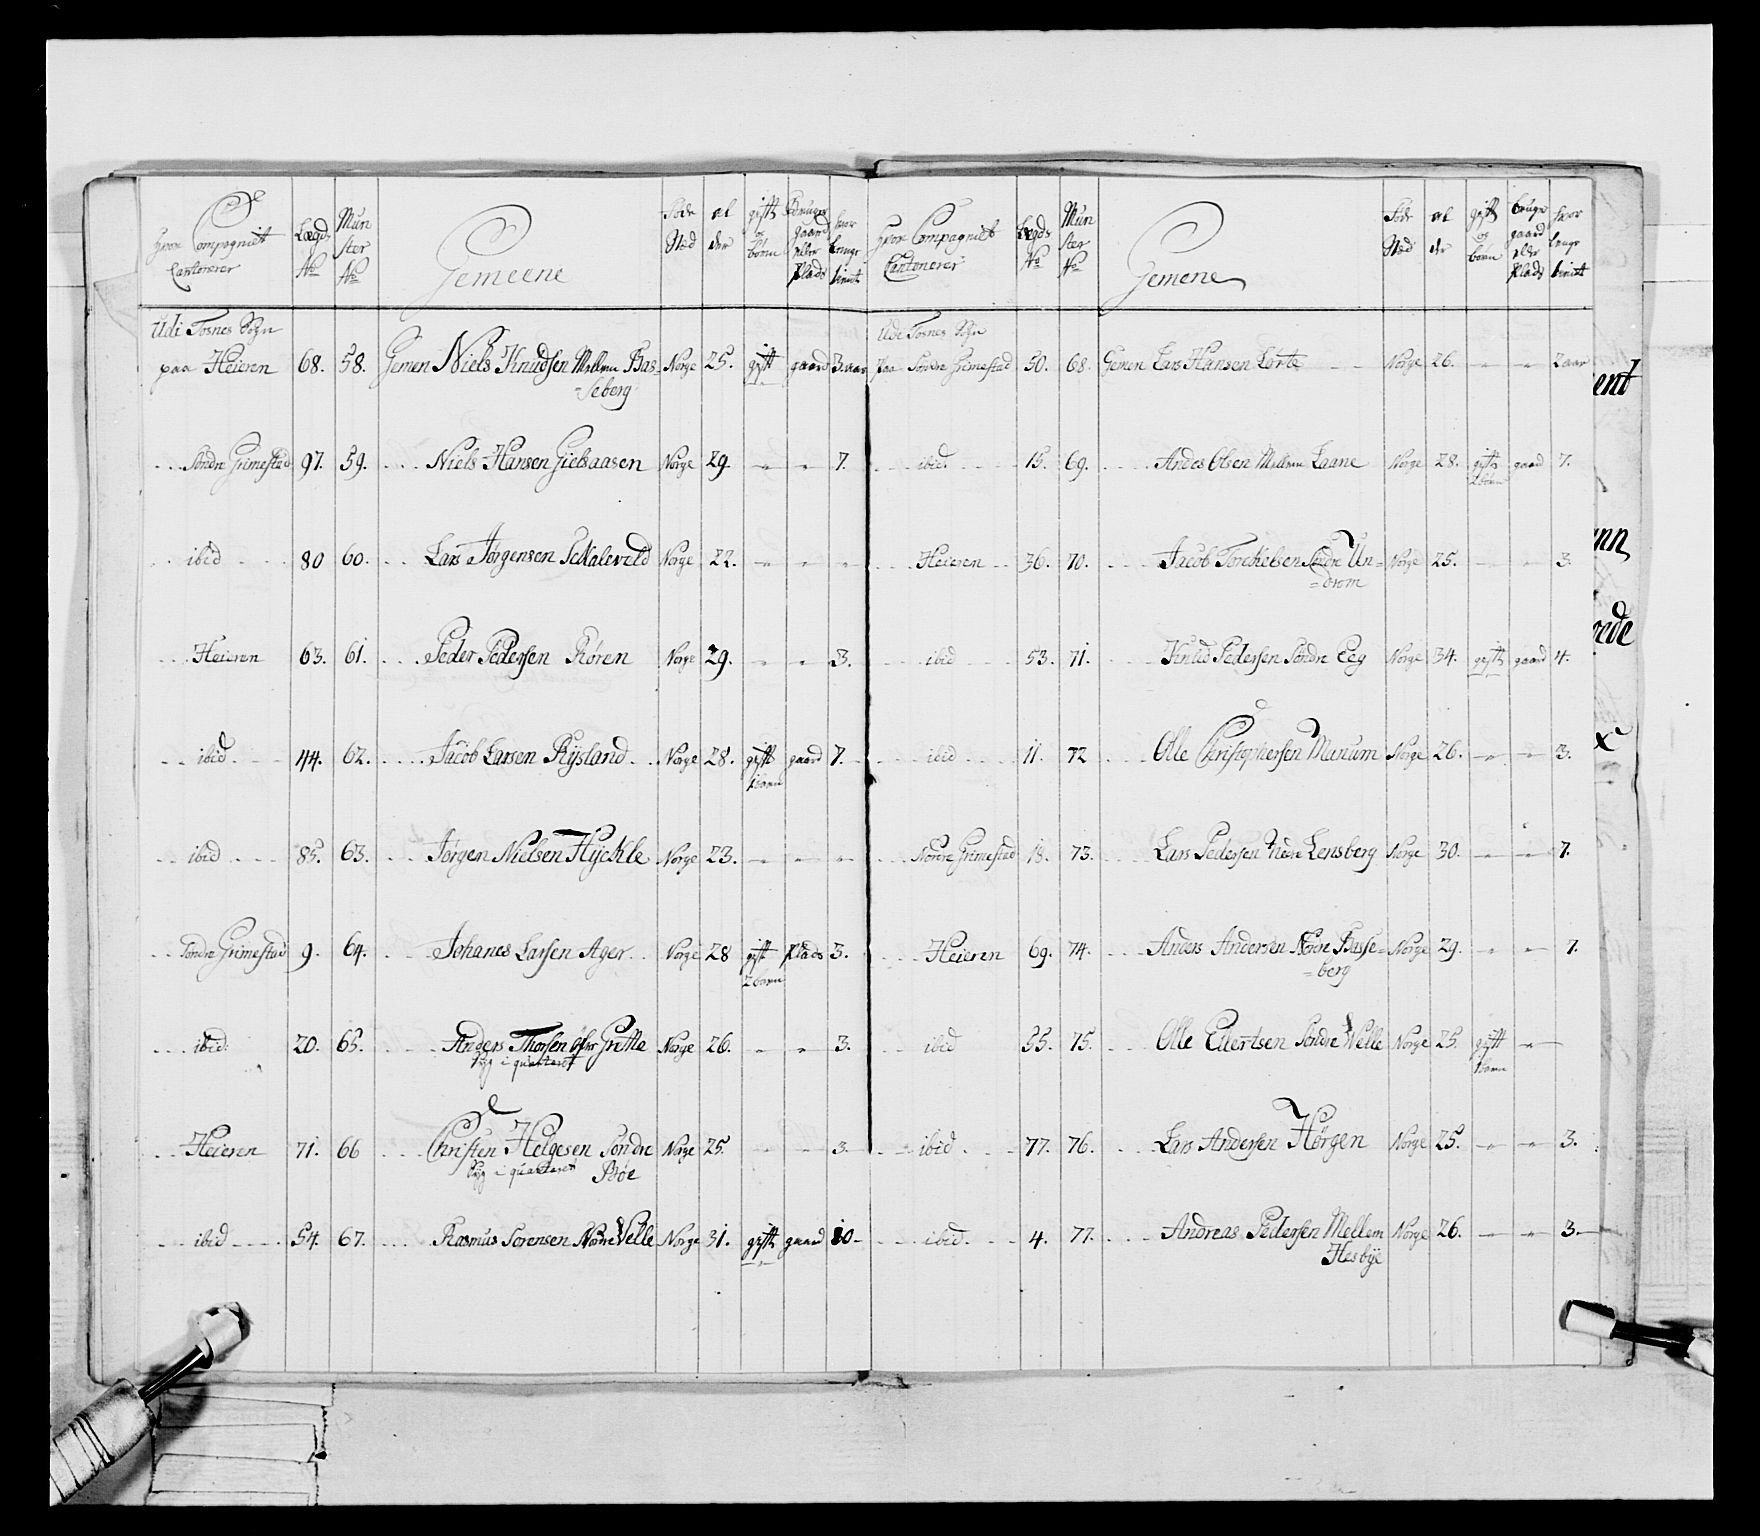 hvor Compagniet Cantonerer | Lægds No | Mun ster No | Gemeene | Føde Stæd | al der | gift og børn | Bruger gaard eller Plads | hvor lenge tient
Udi Tosnes Sogn
paa Heieren 68. 58. Gemen Niels Knudsen Mellem Bas- Norge 25. gift gaard 3. aar
-seberg
Søndre Grimestad 97. 59. Niels Hansen Gielsaasen Norge 29 - - 7.
ibid 80 60. Lars Jørgensen Schaleveld Norge 22. - - -
Heieren 63. 61. Peder Pedersen Røren Norge 29. - - 3.
ibid 44. 62. Jacob Larsen Rysland Norge 28. gift gaard 7.
1 barn
ibid 85. 63. Jørgen Nielsen Hyckle Norge 23. - - -
Søndre Grimestad 9. 64. Johanes Larsen Ager Norge 28 gift plads 3.
2 børn
ibid. 20. 65. Anders Thorsen Grette Norge 26. - - 3.
syg i quarteret
Heieren 71. 66 Christen Helgesen Søndre Norge 25. - - 3.
syg i quarteret Bøe
ibid 54. 67. Rasmus Sorensen Welle Norge 31. gift gaard 10
hvor Compagniet Cantonerer | Lægds No | Mun ster No | Gemene | Føde Stæd | al der | gift og børn | bruger gaard eller plads | hvor lenge tient
Udi Tosnes Sogn
paa Søndre Grimestad 50. 68. Gemen Lars Hansen Lørte Norge 26. - - 2 aar
ibid. 15. 69. Andes Olsen Mellem Laane Norge 28. gift gaard 7.
2 børn
Heieren 36. 70. Jacob Torckelsen Søndre Un- Norge 25. - - 3.
-drom
ibid 53. 71. Knud Pedersen Søndre Eeg Norge 34. gift gaard 4.
ibid 11. 72 Olle Christophersen Munum Norge 26. - - 3.
Nordre Grimestad 18. 73. Lars Pedersen Nedre Lensberg Norge 30. - - 7.
Heieren 69. 74. Anders Andersen Nordre Basse- Norge 29. - - 7.
-berg
ibid 55. 75. Olle Ellertsen Søndre Welle Norge 25. gift -
1 barn
ibid 77. 76. Lars Andersen Hørgen Norge 25. - - 3.
ibid. 4. 77. Andreas Pedersen Mellem Norge 26. - - 3.
Hesbye